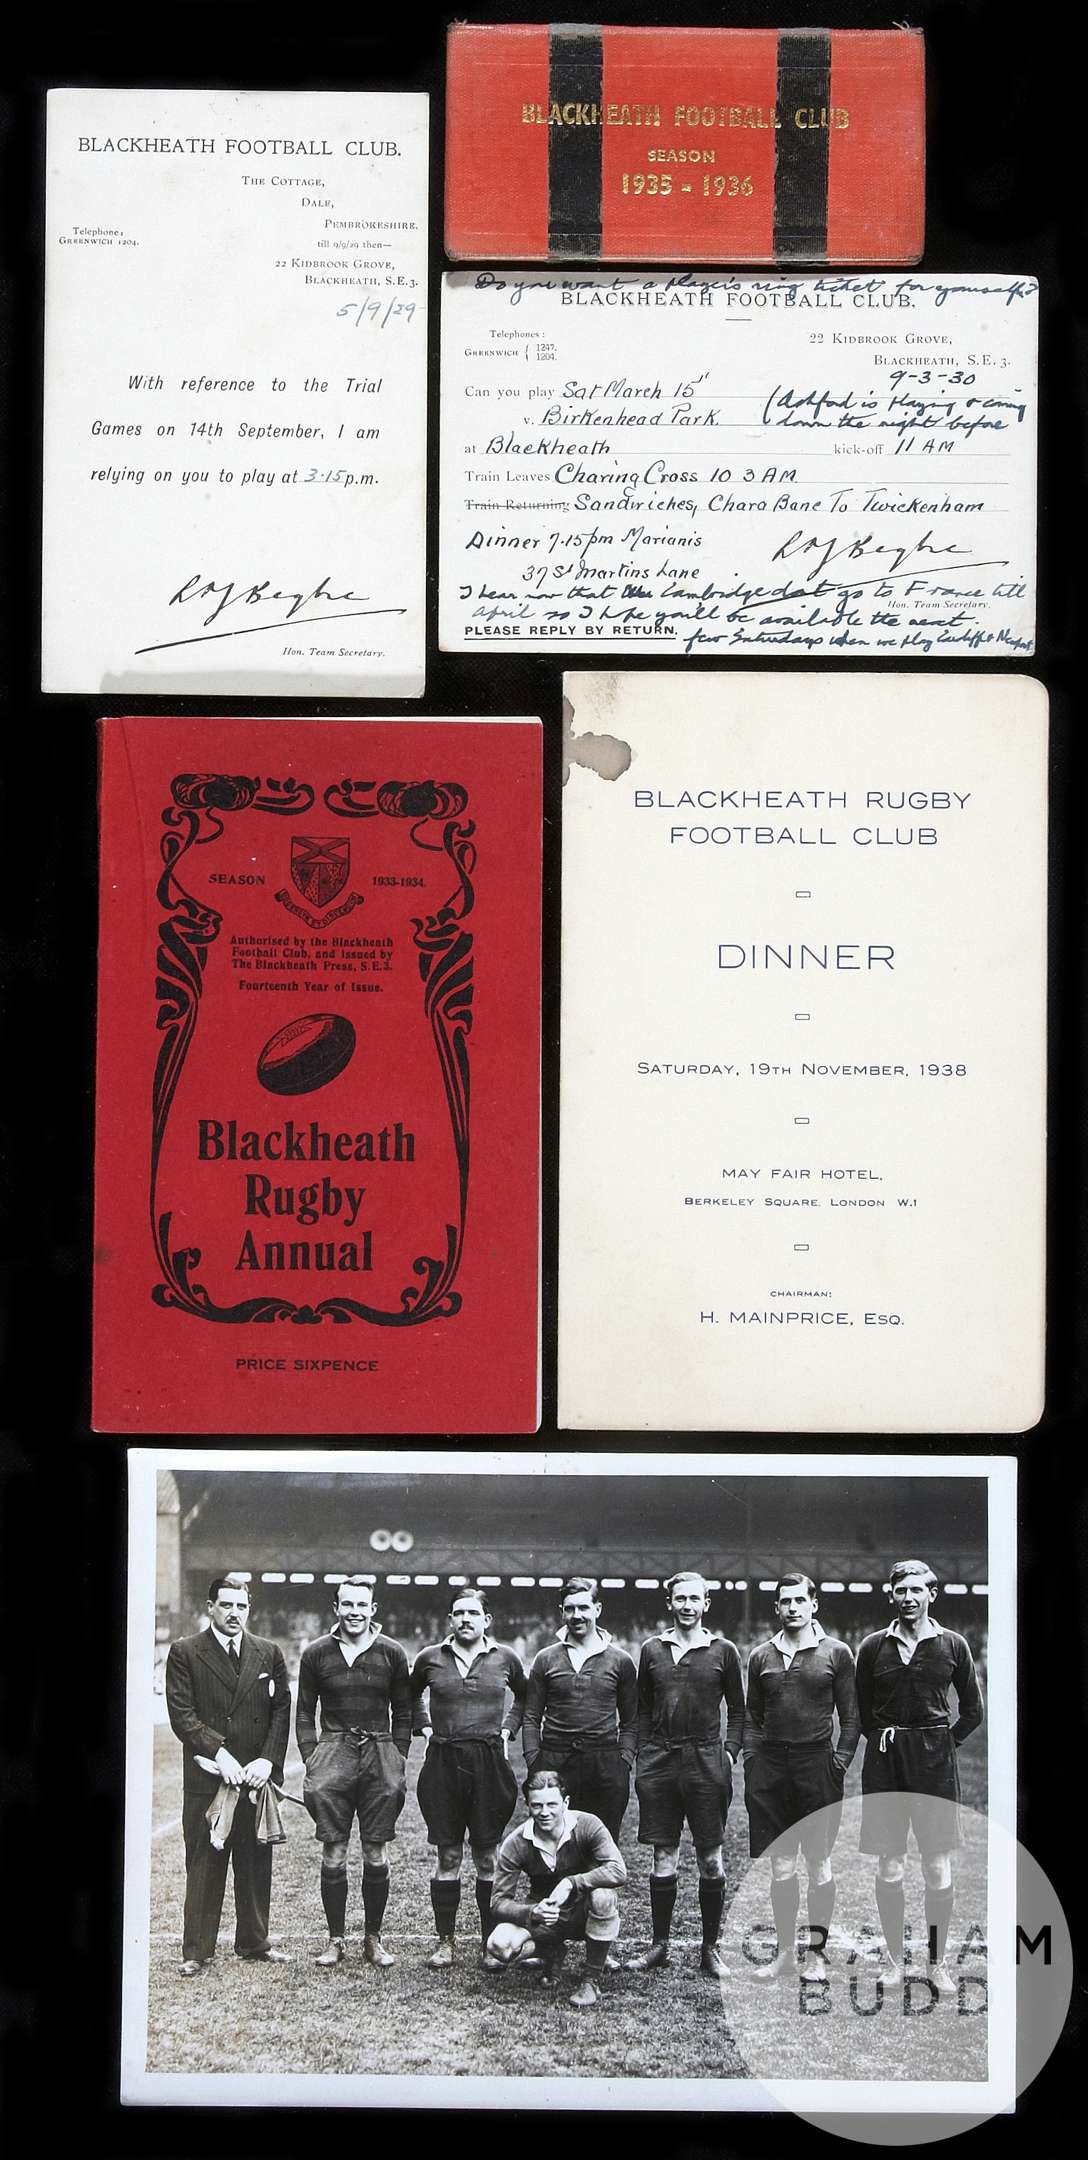 BLACKHEATH FOOTBALL CLUB.
THE COTTAGE,
DALE,
PEMBROKESHIRE.
Telephone:
GREENWICH 1204.
till 9/9/29 then—
22 KIDBROOK GROVE,
BLACKHEATH, S.E.3.
5/9/29
With reference to the Trial
Games on 14th September, I am
relying on you to play at 3.15 p.m.
Hon. Team Secretary.
BLACKHEATH FOOTBALL CLUB
SEASON
1935 - 1936
Do you want a player's ring ticket for yourself?
BLACKHEATH FOOTBALL CLUB.
Telephones:
GREENWICH { 1247.
1204.
22 KIDBROOK GROVE,
BLACKHEATH, S.E.3.
9-3-30
Can you play Sat March 15"
(Ashford is playing & coming
down the night before
v. Birkenhead Park.
at Blackheath kick-off 11 AM
Train Leaves Charing Cross 10 3 AM.
Train Returning Sandwiches, Chara Banc To Twickenham
Dinner 7.15pm Marianis
37 St Martins Lane
I hear now that Cambridge dont go to France till
Hon. Team Secretary.
April so I hope you'll be available the next
PLEASE REPLY BY RETURN.
few Saturdays when we play Cardiff & Newport.
SEASON 1933-1934.
Authorised by the Blackheath
Football Club, and issued by
The Blackheath Press, S.E.3.
Fourteenth Year of Issue.
Blackheath
Rugby
Annual
PRICE SIXPENCE
BLACKHEATH RUGBY
FOOTBALL CLUB
DINNER
SATURDAY, 19TH NOVEMBER, 1938
MAY FAIR HOTEL,
BERKELEY SQUARE. LONDON W.1
CHAIRMAN:
H. MAINPRICE, ESQ.
GRAHAM
BUDD